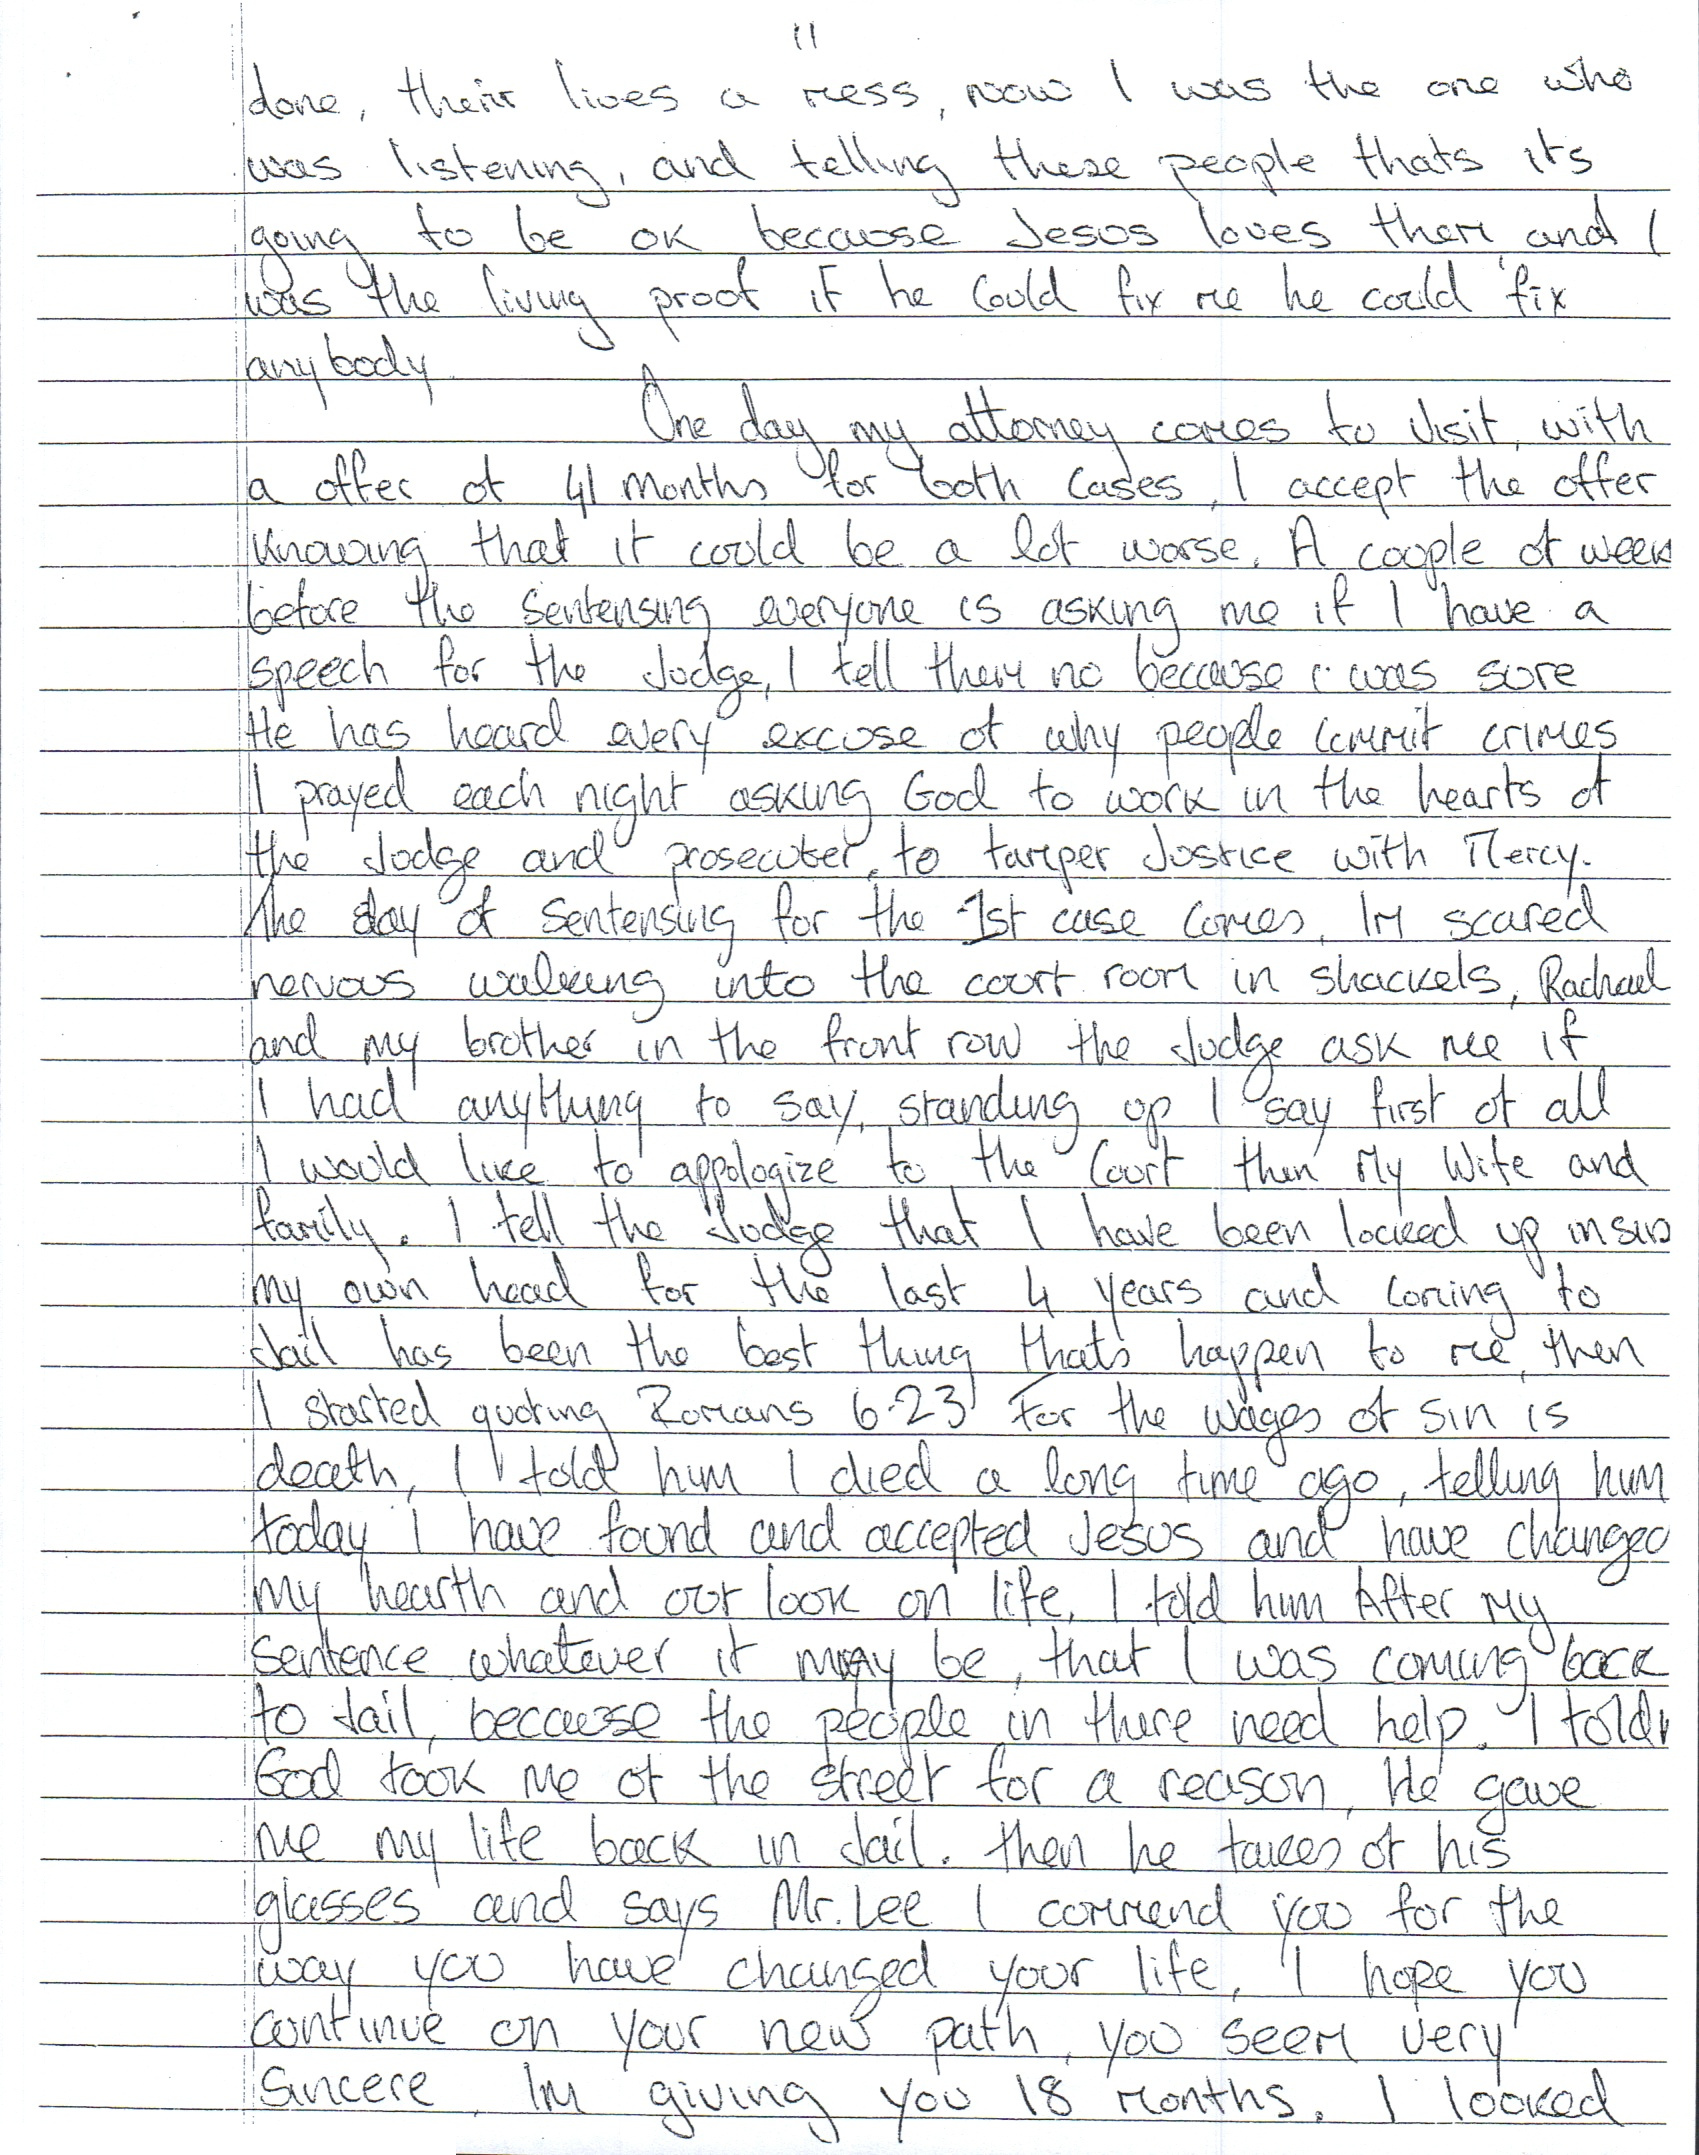 11
done, their lives a mess, now I was the one who
was listening, and telling these people thats its
going to be ok because Jesus loves them and I
was the living proof if he could fix me he could fix
anybody
One day my attorney comes to visit, with
a offer of 41 months for both cases, I accept the offer
knowing that it could be a lot worse. A couple of week
before the sentensing everyone is asking me if I have a
speech for the Judge, I tell them no because i was sure
He has heard every excuse of why people commit crimes
I prayed each night asking God to work in the hearts of
the Judge and prosecuter, to tamper Justice with Mercy.
The day of sentensing for the 1st case comes, Im scared
nervous walking into the court room in shackels, Rachael
and my brother in the front row the Judge ask me if
I had anything to say, standing up I say first of all
I would like to appologize to the Court then My Wife and
family. I tell the Judge that I have been locked up
my own head for the last 4 years and coming to
Jail has been the best thing thats happen to me, then
I started quoting Romans 6-23 For the wages of sin is
death, I told him I died a long time ago, telling him
today I have found and accepted Jesus and have changed
my hearth and out look on life, I told him After My
sentence whatever it may be, that I was coming back
to Jail, because the people in there need help. I told
God took me of the street for a reason, He gave
me my life back in Jail. then he takes of his
glasses and says Mr. Lee I commend you for the
way you have changed your life, I hope you
continue on your new path, you seem very
sincere, Im giving you 18 months. I looked